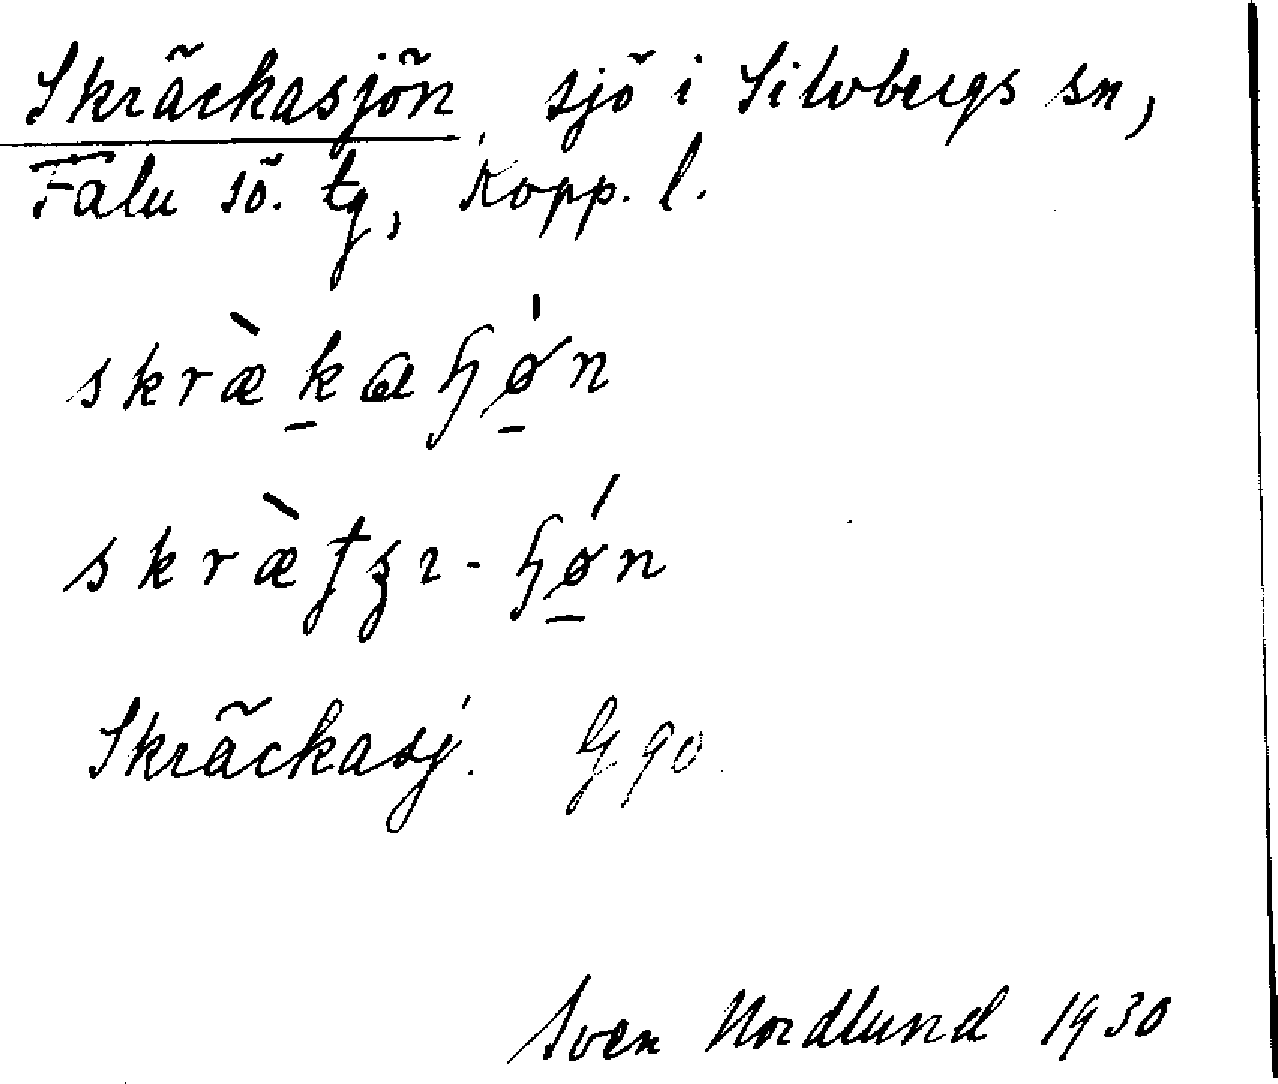 Skräckasjön, sjö i Silvbergs sn,
Falu sö. tg, Kopp. l.
skræ̀kaɧǿn
Skräckasj. G 90.
Sven Nordlund 1930